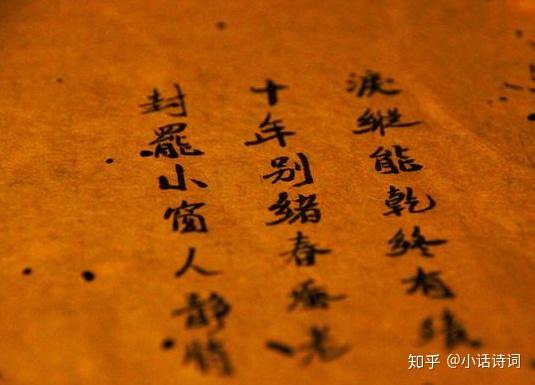 淚縱能乾終有
十年别緒春蚕老
封罷小窗人靜悄
知乎 @小话诗词